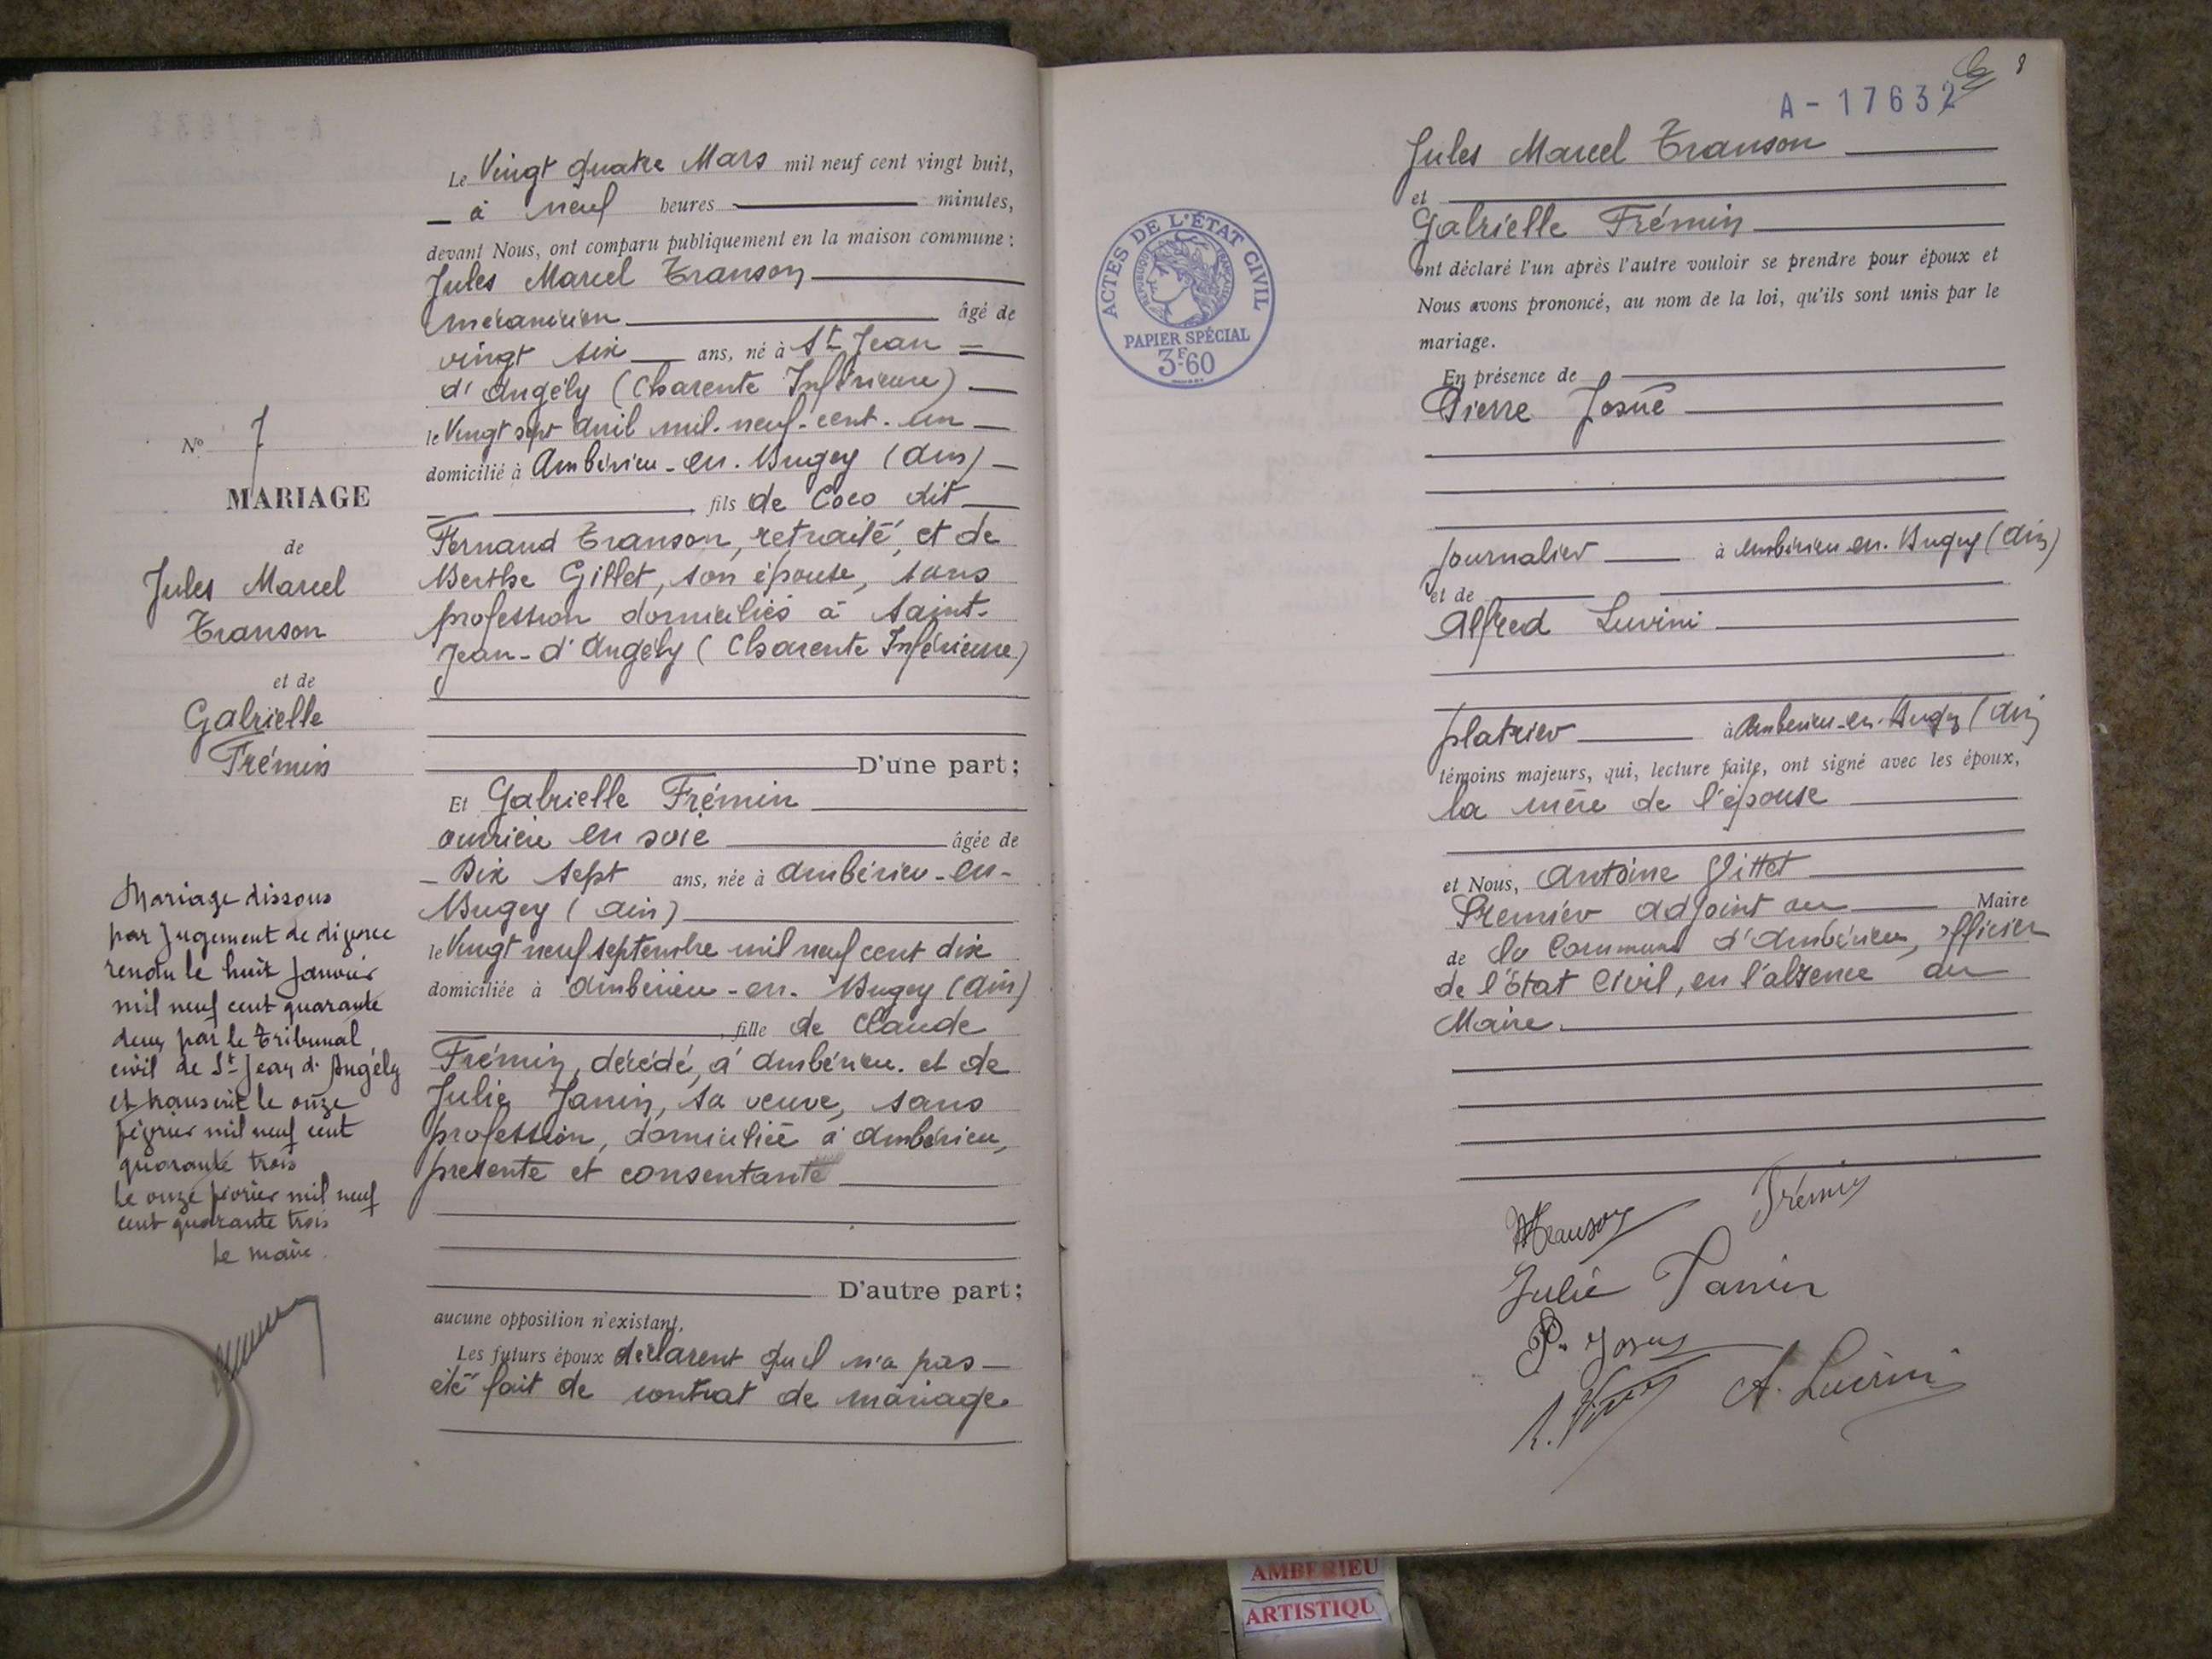 Le Vingt quatre Mars mil neuf cent vingt huit,
à neuf heures minutes,
devant Nous, ont comparu publiquement en la maison commune :
Jules Marcel Transon
mécanicien âgé de
vingt six ans, né à St Jean
d'Angély (Charente Inférieure)
le Vingt sept avril mil neuf cent un
domicilié à Ambérieu-en-Bugey (Ain)
fils de Coco dit
Fernand Transon, retraité, et de
Berthe Gillet, son épouse, sans
profession domiciliés à Saint-
Jean-d'Angély (Charente Inférieure)
D'une part ;
Et Gabrielle Frémin
ouvrière en soie âgée de
Dix sept ans, née à Ambérieu-en-
Bugey (Ain)
le Vingt neuf septembre mil neuf cent dix
domiciliée à Ambérieu-en-Bugey (Ain)
fille de Claude
Frémin, décédé, à Ambérieu. et de
Julie Janin, sa veuve, sans
profession, domiciliée à Ambérieu,
présente et consentante
D'autre part ;
aucune opposition n'existant,
Les futurs époux déclarent qu'il n'a pas
été fait de contrat de mariage.
N° 7
MARIAGE
de
Jules Marcel
Transon
et de
Gabrielle
Frémin
Mariage dissous
par jugement de divorce
rendu le huit Janvier
mil neuf cent quarante
deux par le Tribunal
civil de St Jean d'Angély
et transcrit le onze
février mil neuf cent
quarante trois
Le onze février mil neuf
cent quarante trois
Le maire.
8
A-17632
Jules Marcel Transon
et
Gabrielle Frémin
ont déclaré l'un après l'autre vouloir se prendre pour époux et
Nous avons prononcé, au nom de la loi, qu'ils sont unis par le
mariage.
En présence de
Pierre Josué
journalier à Ambérieu-en-Bugey (Ain)
et de
Alfred Luvini
platrier à Ambérieu-en-Bugey (Ain)
témoins majeurs, qui, lecture faite, ont signé avec les époux,
la mère de l'épouse
et Nous, Antoine Vittet
Premier adjoint au Maire
de la Commune d'Ambérieu, officier
de l'État Civil, en l'absence du
Maire.
Transon Frémin
Julie Janin
P. Josué
A. Luvini
ACTES DE L'ÉTAT CIVIL
RÉPUBLIQUE FRANÇAISE
PAPIER SPÉCIAL
3F60
AMBERIEU
ARTISTIQU